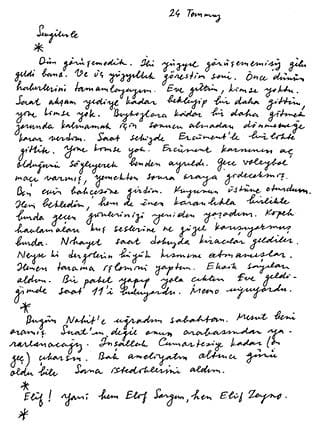 24 Temmuz
Sevgilerle
*
Dün görüşemedik. İki yüzyıl görüşememişiz gibi
geldi bana. Ve üç yüzyıllık göresim seni. Önce dünün
haberlerini tamamlayayım. Eve gittim, kimse yoktu.
Saat akşam yediye kadar bekleyip bir daha gittim,
yine kimse yok. Boşboğlara kadar bir daha gitmek
zorunda kalmamak için sonucu almadan dönmemeğe
karar verdim. Saat sekizde Ercüment'le birlikte
gittik. Yine kimse yok. Ercüment karnının aç
olduğunu söyleyerek benden ayrıldı. Gece voleybol
maçı varmış, yemekten sonra oraya gidecekmiş.
Ben evin bahçesine girdim. Kuyunun üstüne oturdum.
Hem bekledim, hem de önen karanlıkta birlikte
burda geçen günlerimizi yeniden yaşadım. Köpek
havlamaları kuş seslerine ne güzel karışıyormuş
burda. Nihayet saat dokuzda kiracılar geldiler.
Neyse ki dergilerin büyük kısmını atmamışlar.
Hemen tarama işlemini yaptım. Eksik sayıları
aldım. Bir paket yapıp yola çıktım Eve geldi-
ğimde saat 11'i buluyordu. Memo uyuyordu.
*
Bugün Nahit'e uğradım sabahtan. Mesut beni
aramış. Suat'ın değil onun arabasından ya-
rarlanacağız. İnşallah Cumartesiye kadar (en
geç) çıkarsın. Bak ameliyatın altıncı günü
oldu bile. Sonra istediklerini aldım.
*
Elif! Yani hem Elif Sorgun, hem Elif Zeyno.
*